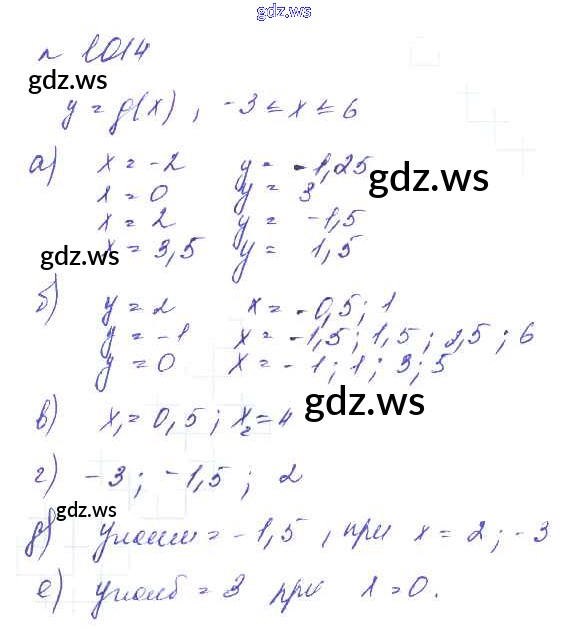 gdz.ws
n 1014
gdz.ws
y = g(x), -3 ≤ x ≤ 6
а) x = -2 y = -1,25
gdz.ws
x = 0 y = 3
x = 2 y = -1,5
gdz.ws
x = 3,5 y = 1,5
б) y = 2 x = -0,5; 1
y = -1 x = -1,5; 1,5; 2,5; 6
y = 0 x = -1; 1; 3; 5
gdz.ws
в) x₁ = 0,5; x₂ = 4
г) -3; -1,5; 2
gdz.ws
д) yнаим = -1,5, при x = 2; -3
е) yнаиб = 3 при x = 0.